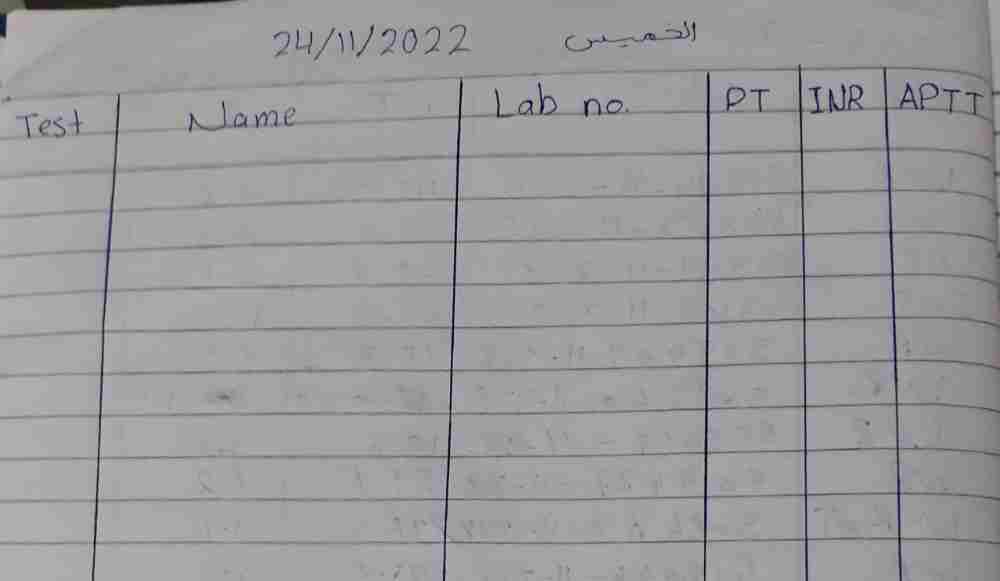 24/11/2022 الخميس
Test Name Lab no. PT INR APTT